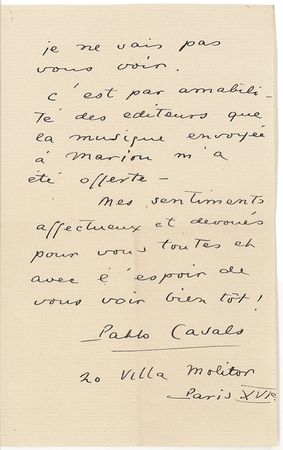 je ne vais pas
vous voir.
c'est par amabili-
té des editeurs que
la musique envoyée
à Marion m'a
été offerte –
Mes sentiments
affectueux et devoués
pour vous toutes et
avec l'espoir de
vous voir bien tôt !
Pablo Casals
20 Villa Molitor
Paris XVIe